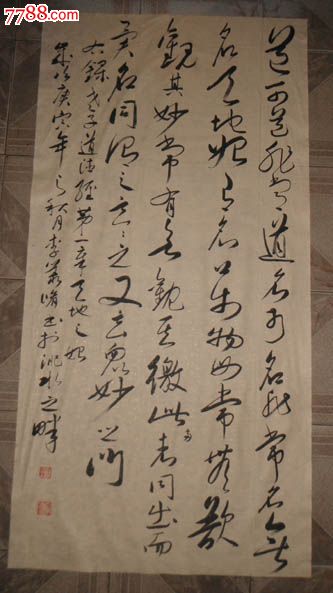 7788.com
道可道非常道名可名非常名无
名天地始有名万物母常无欲
观其妙常有欲观其徼此两者同出而
异名同谓之玄玄之又玄众妙之门
右录老子道德经第一章天地之始
岁次庚寅年之秋月李 书于洮水之畔